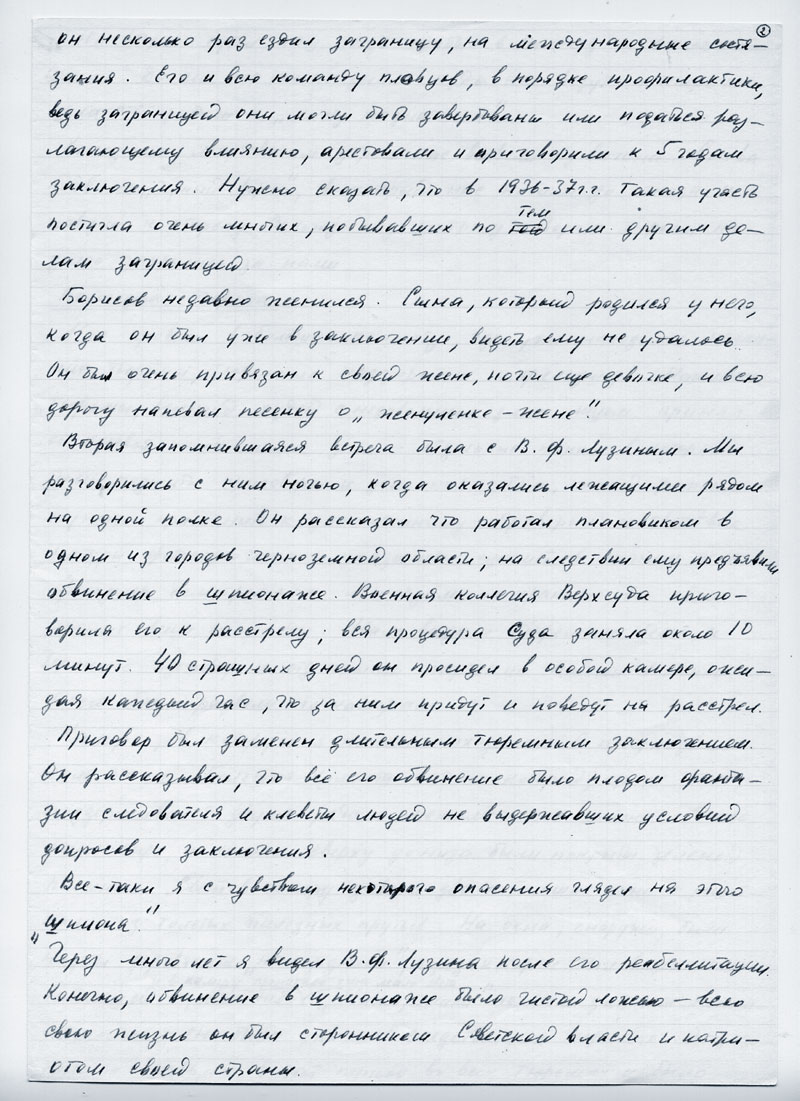 2
он несколько раз ездил заграницу, на международные состя-
зания. Его и всю команду пловцов, в порядке профилактики,
ведь заграницей они могли быть завербованы или податься раз-
лагающему влиянию, арестовали и приговорили к 5 годам
заключения. Нужно сказать, что в 1936-37 г.г. такая участь
постигла очень многих, побывавших по тем или другим де-
лам заграницей.
Борисов недавно женился. Сына, который родился у него,
когда он был уже в заключении, видеть ему не удалось.
Он был очень привязан к своей жене, почти еще девочке, и всю
дорогу напевал песенку о „женуленке-жене".
Вторая запомнившаяся встреча была с В. Ф. Лузиным. Мы
разговорились с ним ночью, когда оказались лежащими рядом
на одной полке. Он рассказал что работал плановиком в
одном из городов черноземной области; на следствии ему предъявили
обвинение в шпионаже. Военная коллегия Верхсуда приго-
ворила его к расстрелу; вся процедура суда заняла около 10
минут. 40 страшных дней он просидел в особой камере, ожи-
дая каждый час, что за ним придут и поведут на расстрел.
Приговор был заменен длительным тюремным заключением.
Он рассказывал, что всё его обвинение было плодом фанта-
зии следователя и клеветы людей не выдержавших условий
допросов и заключения.
Все-таки я с чувством некоторого опасения глядел на этого
„шпиона".
Через много лет я видел В. Ф. Лузина после его реабилитации.
Конечно, обвинение в шпионаже было чистой ложью — всю
свою жизнь он был сторонником Советской власти и патри-
отом своей страны.